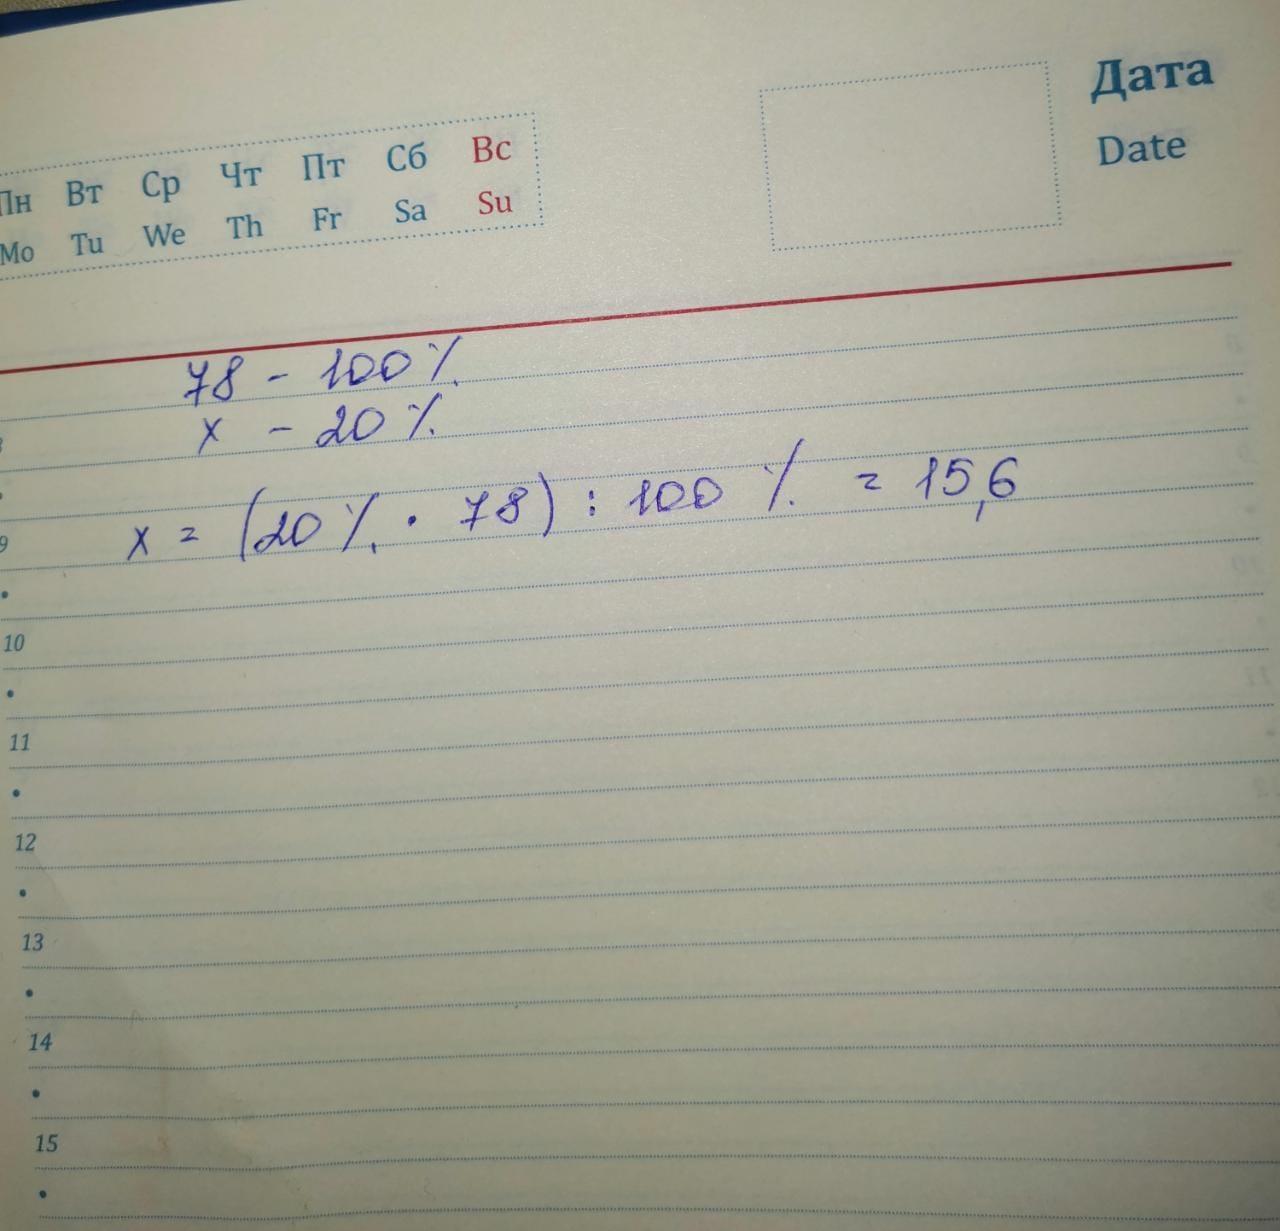 Дата
Date
Пн Вт Ср Чт Пт Сб Вс
Mo Tu We Th Fr Sa Su
78 - 100 %
x - 20 %
x = (20 % · 78) : 100 % = 15,6
9
10
11
12
13
14
15